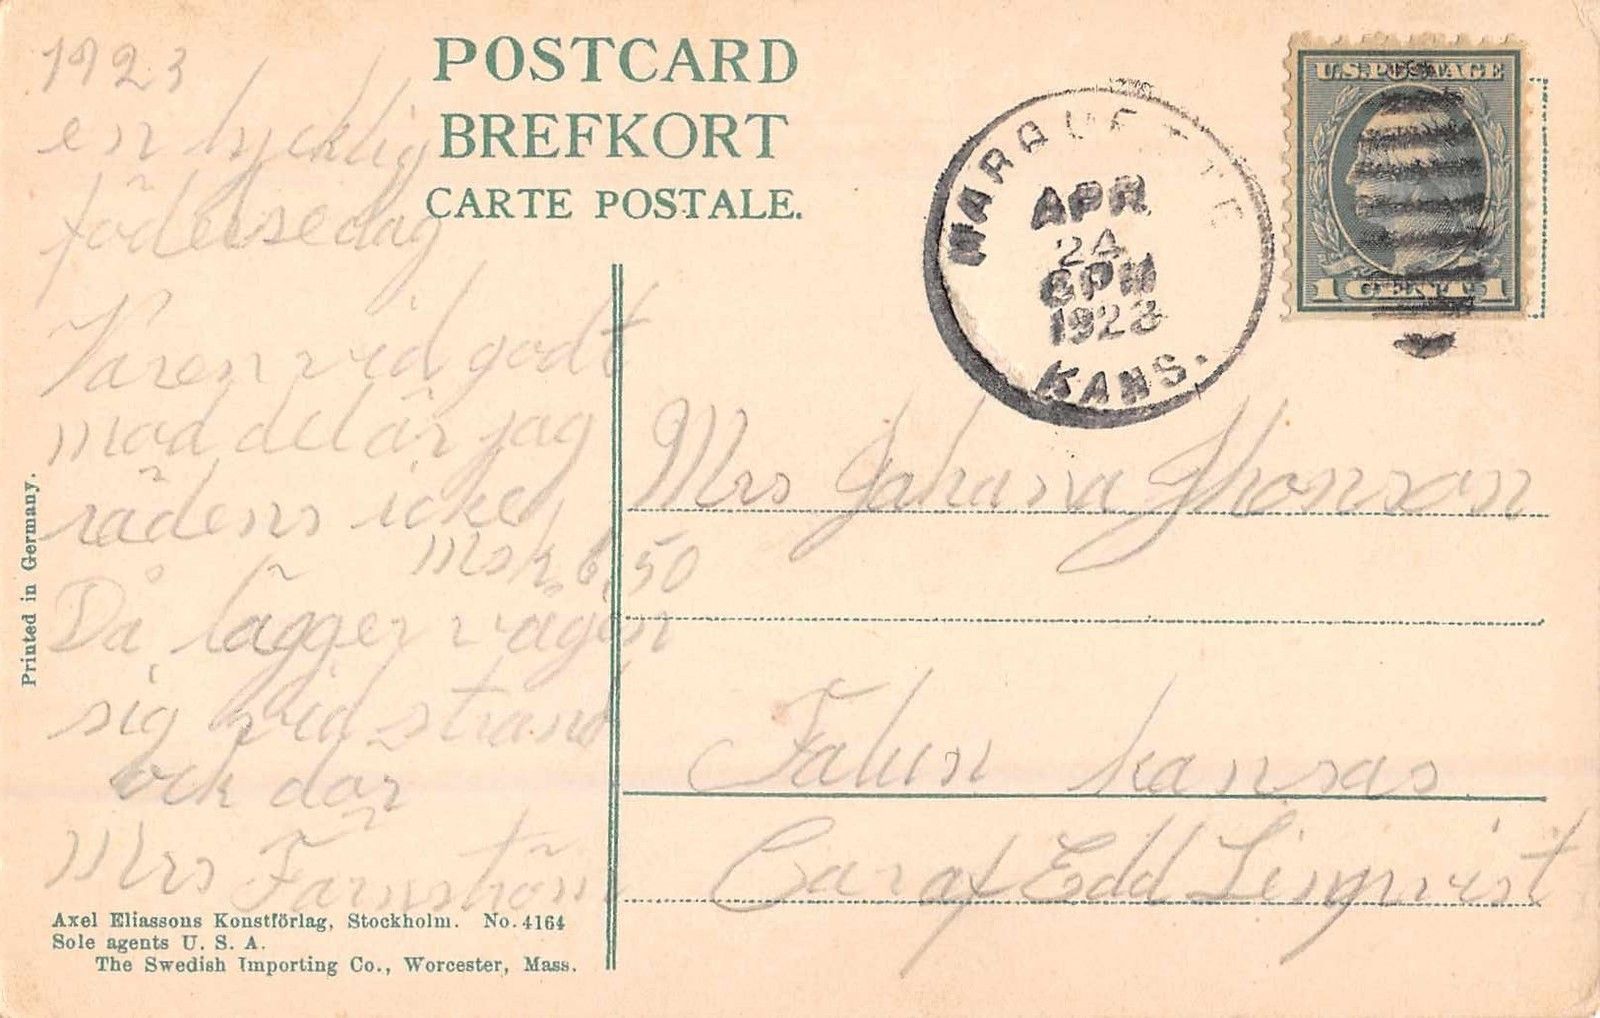 1923
en lycklig
födelsedag
Varen vid godt
mod det är jag
rädens icke
Msk 6,50
Då lägger vägen
sig vid strand
ock där
Mrs Färnström
POSTCARD
BREFKORT
CARTE POSTALE.
Printed in Germany.
Axel Eliassons Konstförlag, Stockholm. No. 4164
Sole agents U. S. A.
The Swedish Importing Co., Worcester, Mass.
MARQUETTE
APR
24
6PM
1923
KANS.
U.S. POSTAGE
1 CENT 1
Mrs Johana Jhonson
Falun Kansas
Car of Edd Linqvist